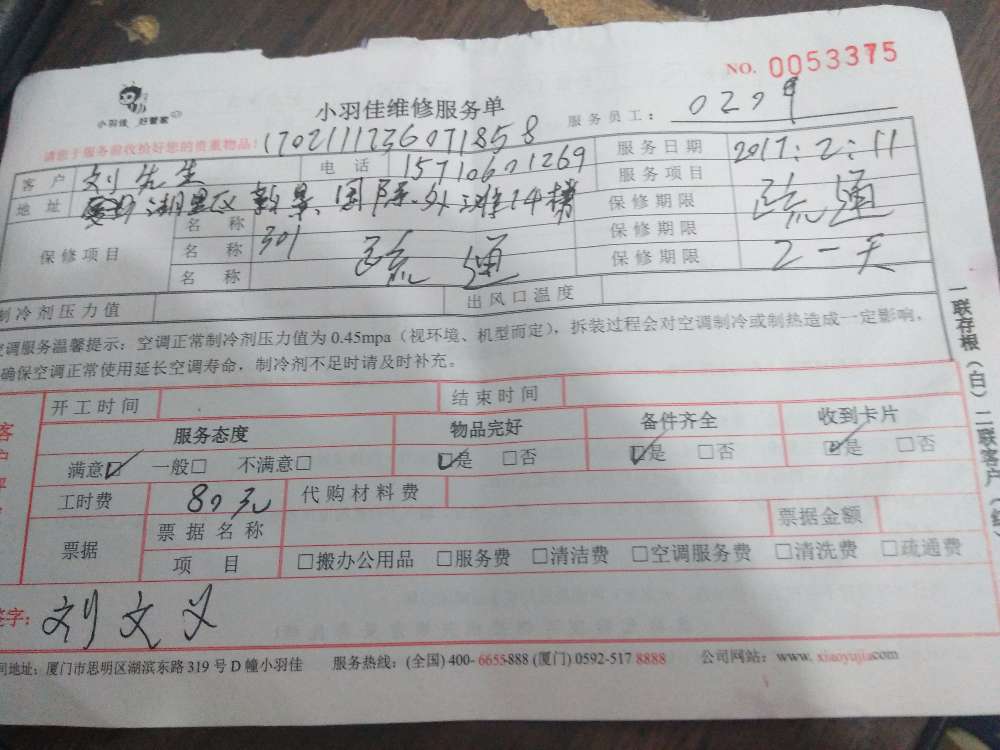 NO. 0053375
小羽佳 好管家
小羽佳维修服务单
服务员工: 0209
请您于服务前收拾好您的贵重物品! 170211123607185 8
客 户 刘先生 电 话 15710601269 服务日期 2017:2:11
地 址 湖里区 国际 外滩14楼 服务项目 疏通
保修项目 名 称 301 保修期限
名 称 疏通 保修期限
名 称 保修期限 2一天
制冷剂压力值 出风口温度
空调服务温馨提示: 空调正常制冷剂压力值为 0.45mpa (视环境、机型而定), 拆装过程会对空调制冷或制热造成一定影响,
确保空调正常使用延长空调寿命, 制冷剂不足时请及时补充。
开工时间 结束时间
服务态度 物品完好 备件齐全 收到卡片
满意☑ 一般□ 不满意□ ☑是 □否 ☑是 □否 ☑是 □否
工时费 80元 代购材料费
票据 票据名称 票据金额
项 目 □搬办公用品 □服务费 □清洁费 □空调服务费 □清洗费 □疏通费
签字: 刘文义
司地址: 厦门市思明区湖滨东路 319 号 D 幢小羽佳 服务热线: (全国) 400- 6655-888 (厦门) 0592-517 8888 公司网站: www. xiaoyujia.com
一联存根(白) 二联客户